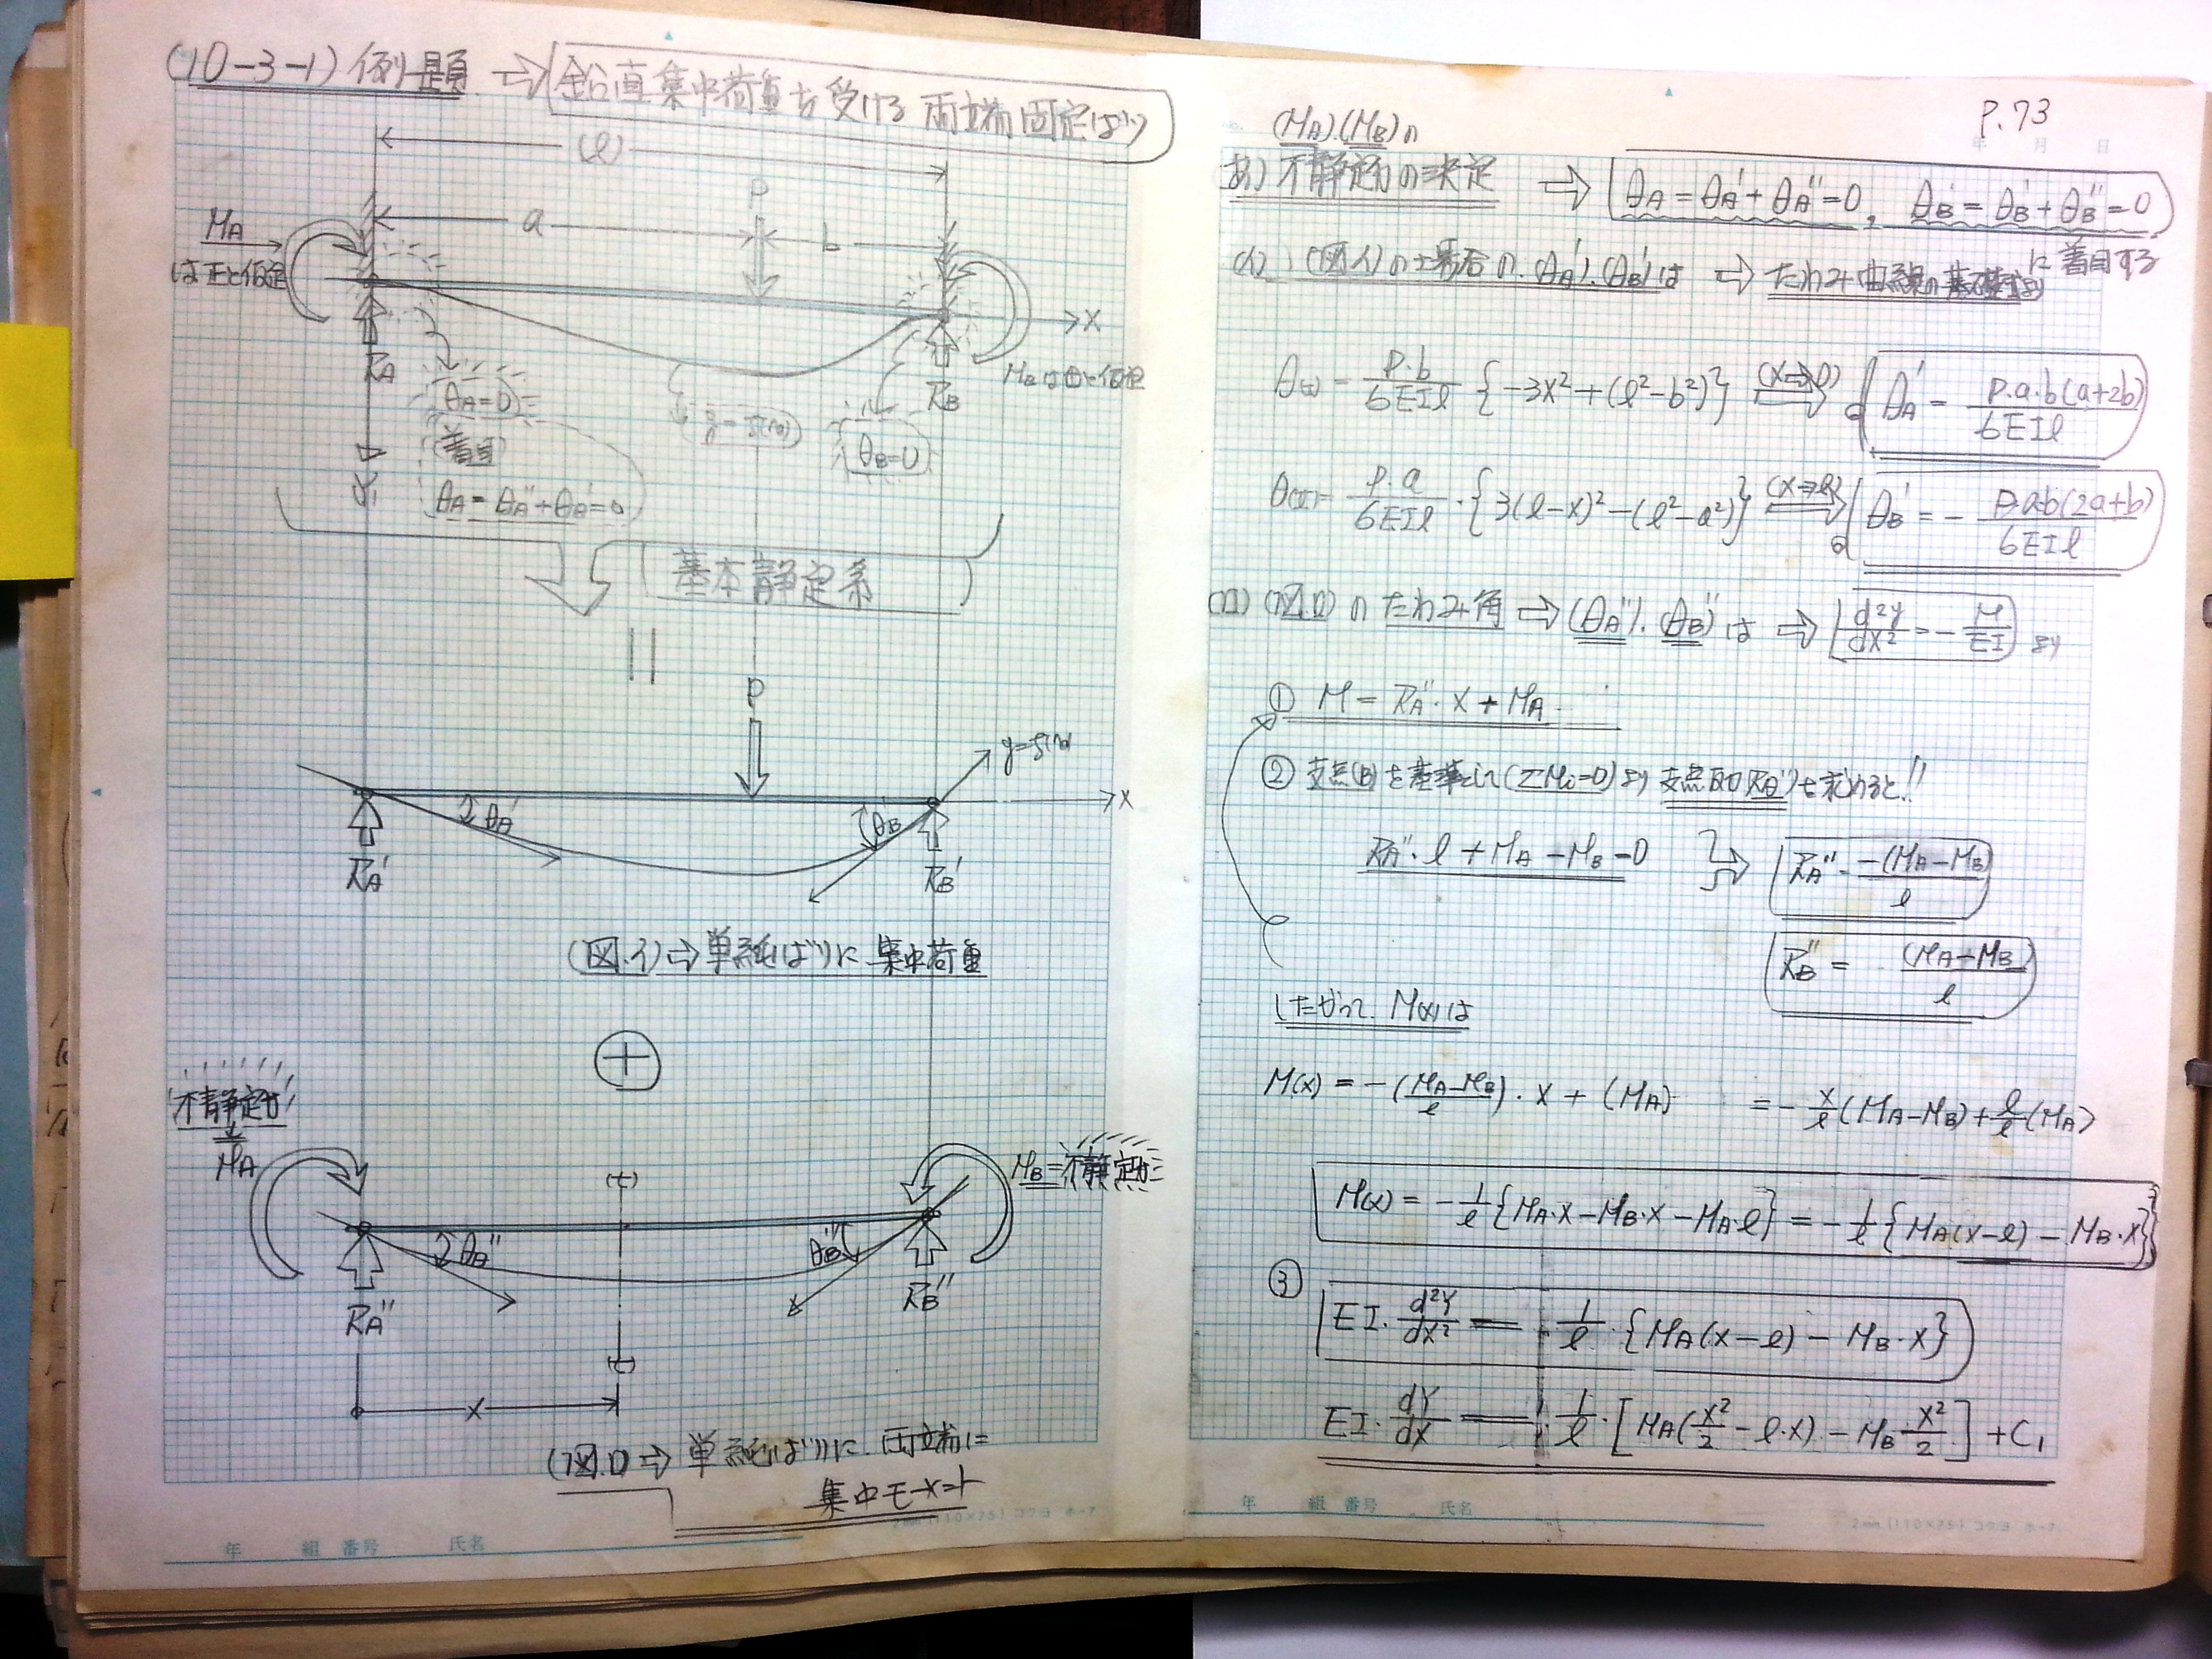 (10-3-1) 例題 ⇒ 鉛直集中荷重を受ける両端固定ばり
(l)
P
a
b
MA
は正と仮定
X
RA
RB
MBは正と仮定
θA=0
(着目)
θA=θA''+θA'=0
θB=0
Y
基本静定系
P
y=f(x)
X
θA'
θB'
RA'
RB'
(図.イ)⇒単純ばりに集中荷重
+
不静定力
MA
MB=不静定力
θA''
θB''
RA''
RB''
x
(図.ロ)⇒単純ばりに両端に
集中モーメント
年 組 番号 氏名
P.73
No.
年 月 日
(MA).(MB)の
あ) 不静定力の決定 ⇒ θA=θA'+θA''=0, θB=θB'+θB''=0
に着目する
(イ) (図イ)の場合の.(θA').(θB')は ⇒ たわみ曲線の基礎式より
θ(I) = P・b/6EIl {-3x²+(l²-b²)} (x→0) ⇒ θA' = P.a.b(a+2b)/6EIl
θ(II) = P.a/6EIl・{3(l-x)²-(l²-a²)} (x→l) ⇒ θB' = - P.a.b(2a+b)/6EIl
(ロ) (図.ロ)のたわみ角 ⇒ (θA'').(θB'')は ⇒ d²y/dx² = - M/EI より
① M = RA''・x + MA
② 支点(B)を基準として(ΣMi=0)より 支点反力(RA'')を求めると!!
RA''・l + MA - MB = 0 ⇒ RA'' = -(MA-MB)/l
RB'' = (MA-MB)/l
したがって. M(x)は
M(x) = -(MA-MB/l)・x + (MA) = - x/l(MA-MB) + l/l(MA)
M(x) = - 1/l{MA・x-MB・x-MA・l} = - 1/l{MA(x-l) - MB・x}
③ EI・d²Y/dx² = 1/l・{MA(x-l) - MB・x}
EI・dY/dx = 1/l・[MA(x²/2 - l・x) - MB・x²/2] + C1
年 組 番号 氏名